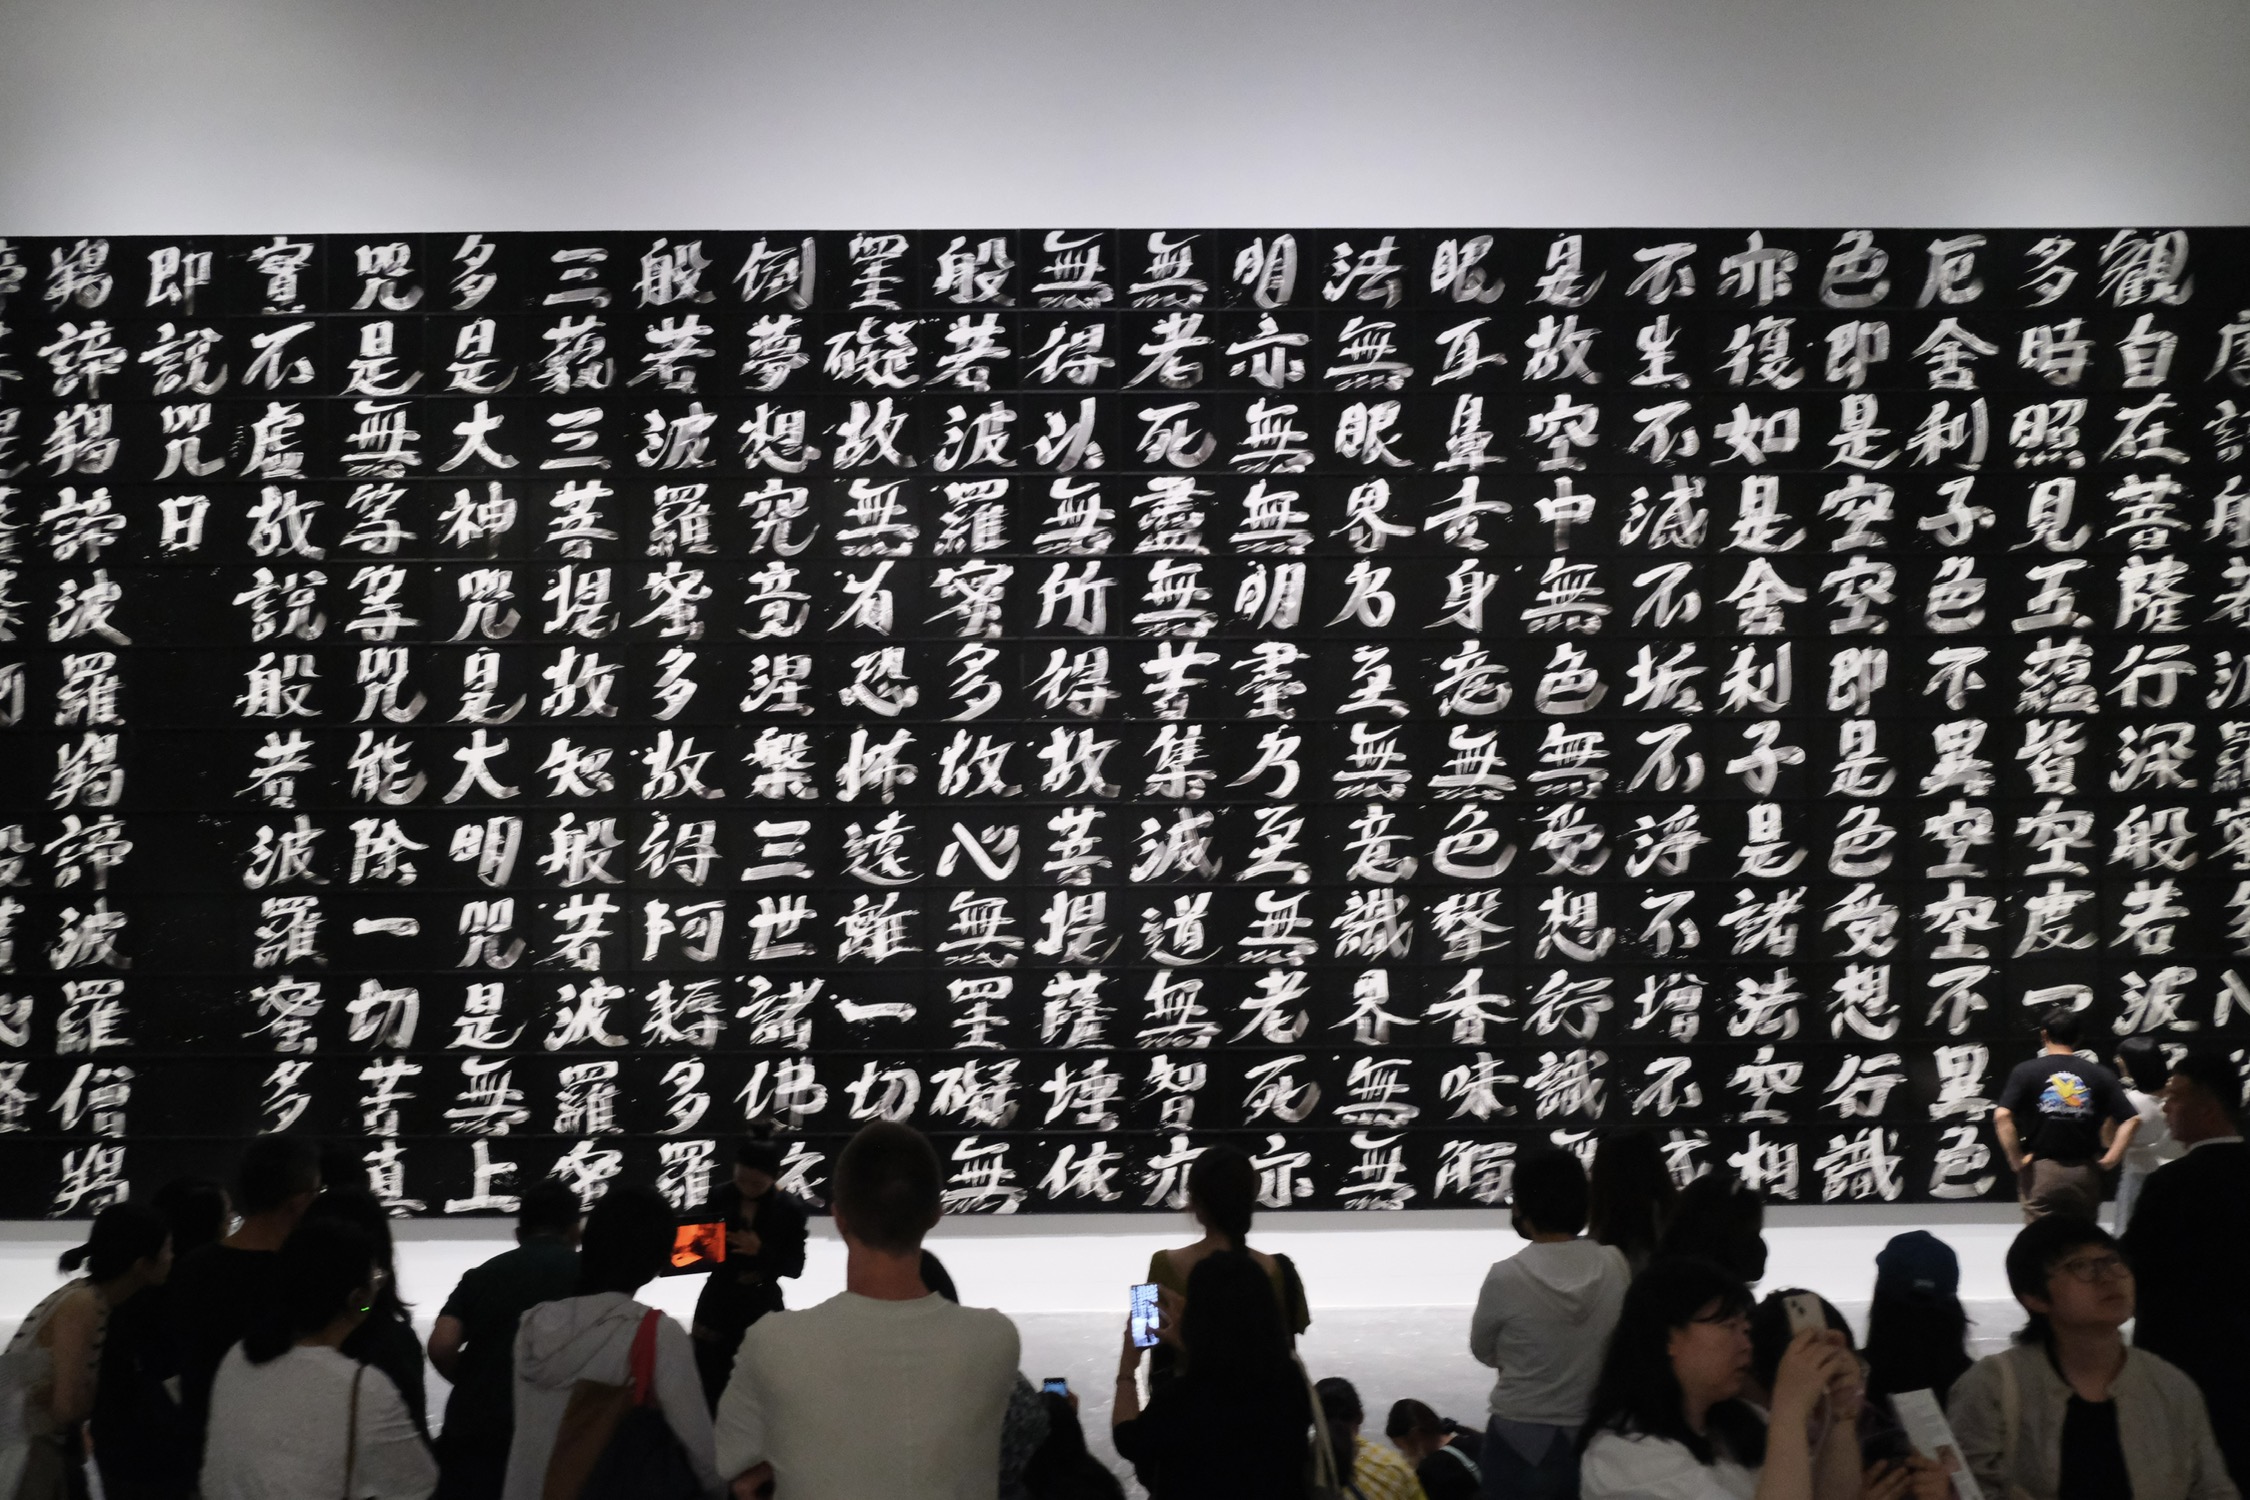 觀自在菩薩行深般若波
多時照見五蘊皆空度一
厄舍利子色不異空空不異色
色即是空空即是色受想行識
亦復如是舍利子是諸法空相
不生不滅不垢不淨不增不
是故空中無色無受想行識無
眼耳鼻舌身意無色聲香味觸
法無眼界乃至無意識界無無
明亦無無明盡乃至無老死亦
無老死盡無苦集滅道無智亦
無得以無所得故菩提薩埵依
般若波羅蜜多故心無罣礙無
罣礙故無有恐怖遠離一切
倒夢想究竟涅槃三世諸佛依
般若波羅蜜多故得阿耨多羅
三藐三菩提故知般若波羅蜜
多是大神咒是大明咒是無上
咒是無等等咒能除一切苦真
實不虛故說般若波羅蜜多
即說咒曰
羯諦羯諦波羅羯諦波羅僧羯